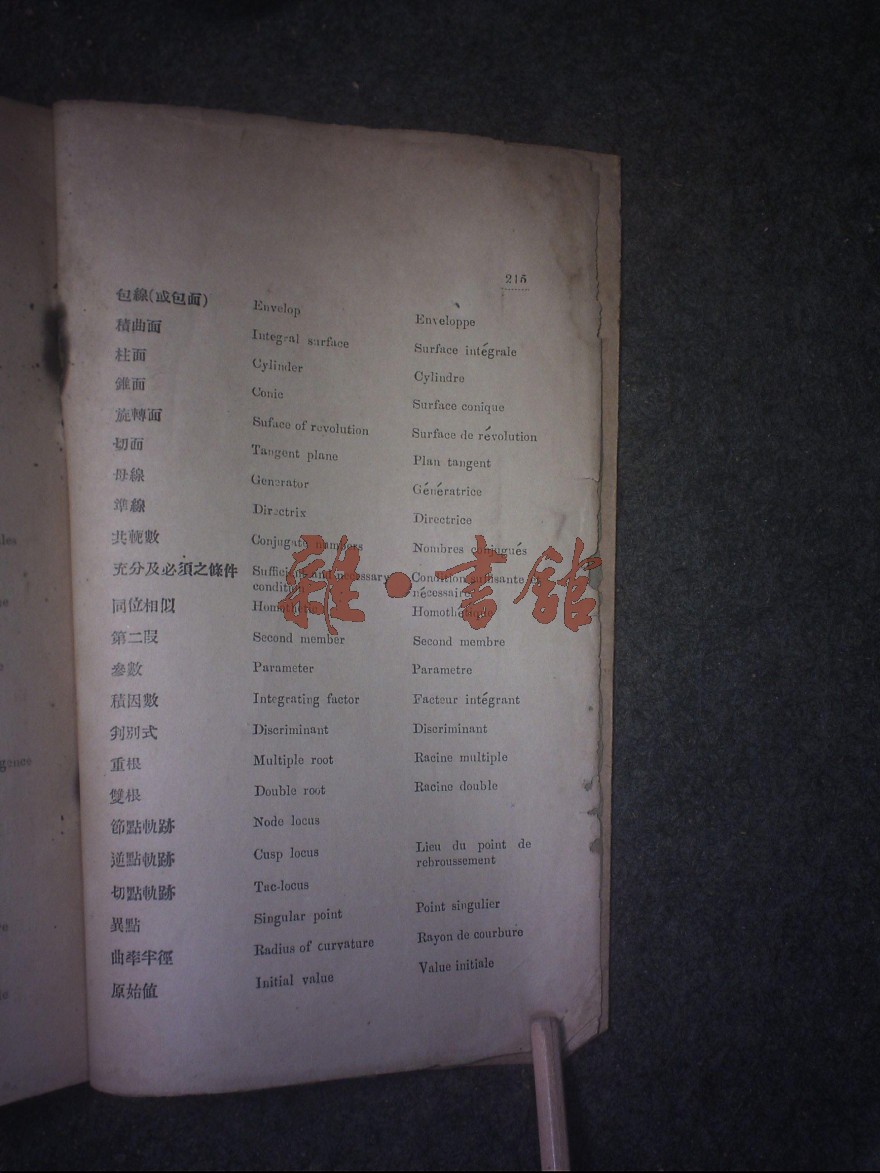 215
包線(或包面) Envelop Enveloppe
積曲面 Integral surface Surface intégrale
柱面 Cylinder Cylindre
錐面 Conic Surface conique
旋轉面 Suface of revolution Surface de révolution
切面 Tangent plane Plan tangent
母線 Generator Génératrice
準線 Directrix Directrice
共軛數 Conjugate numbers Nombres conjugués
充分及必須之條件 Sufficient and necessary Condition suffisante et
condition nécessaire
同位相似 Homothetic Homothétique
第二段 Second member Second membre
參數 Parameter Parametre
積因數 Integrating factor Facteur intégrant
判別式 Discriminant Discriminant
重根 Multiple root Racine multiple
雙根 Double root Racine double
節點軌跡 Node locus
逆點軌跡 Cusp locus Lieu du point de
rebroussement
切點軌跡 Tac-locus
異點 Singular point Point singulier
曲率半徑 Radius of curvature Rayon de courbure
原始値 Initial value Value initiale
雜·書館
gence